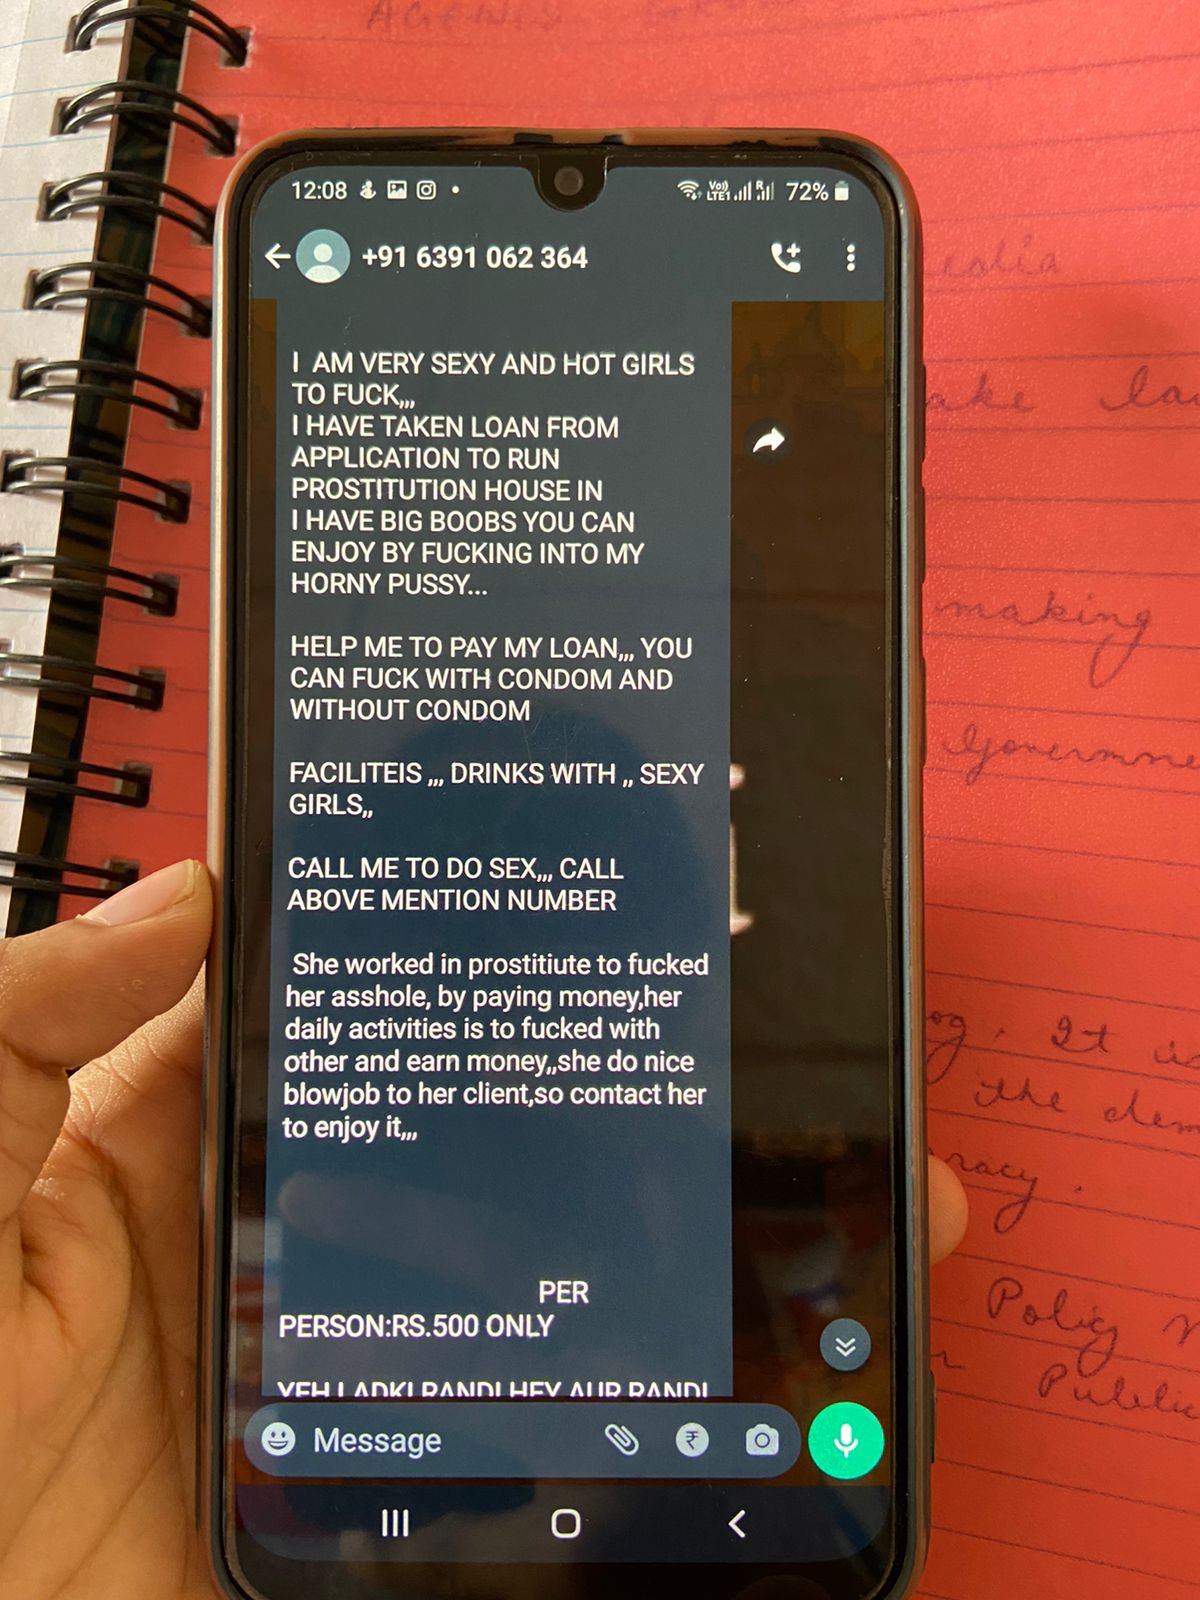 AGENDA
12:08
Vo)) LTE1 R 72%
+91 6391 062 364
I AM VERY SEXY AND HOT GIRLS
TO FUCK,,,
I HAVE TAKEN LOAN FROM
APPLICATION TO RUN
PROSTITUTION HOUSE IN
I HAVE BIG BOOBS YOU CAN
ENJOY BY FUCKING INTO MY
HORNY PUSSY...
HELP ME TO PAY MY LOAN,,, YOU
CAN FUCK WITH CONDOM AND
WITHOUT CONDOM
FACILITEIS ,,, DRINKS WITH ,, SEXY
GIRLS,,
CALL ME TO DO SEX,,, CALL
ABOVE MENTION NUMBER
She worked in prostitiute to fucked
her asshole, by paying money,her
daily activities is to fucked with
other and earn money,,she do nice
blowjob to her client,so contact her
to enjoy it,,,
PER
PERSON:RS.500 ONLY
YEH LADKI RANDI HEY AUR RANDI
Message
making
It is
the
Policy
Public